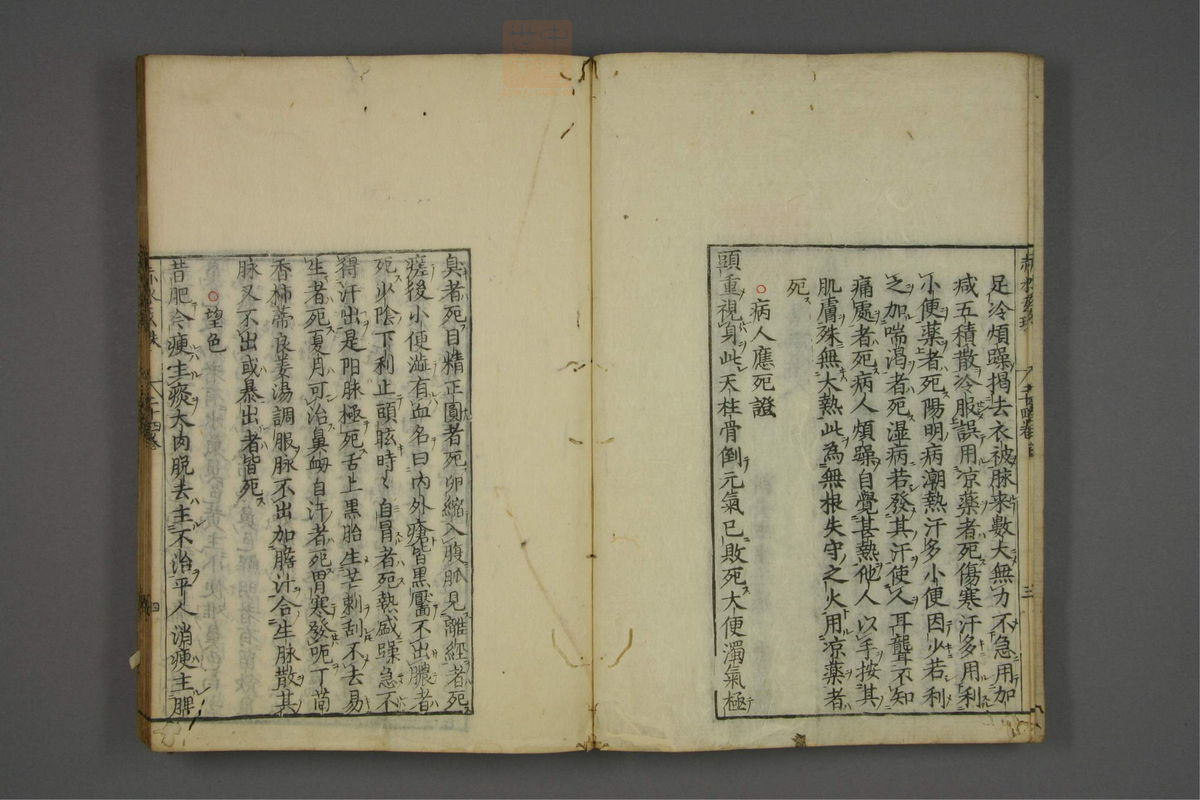 足冷煩躁揭去衣被脉来數大無力不急用加
減五積散冷服誤用凉藥者死傷寒汗多用利
小便藥者死陽明病潮熱汗多小便因少若利
之加喘渴者死湿病若發其汗使人耳聾不知
痛處者死病人煩躁自覺甚熱他人以手按其
肌膚殊無大熱此為無根失守之火用凉藥者
死
病人應死證
頭重視身此天柱骨倒元氣已敗死大便濁氣極
臭者死目精正圓者死卵縮入腹脉見離經者死
瘥後小便澁有血名曰内外瘡皆黒靨不出膿者
死少陰下利止頭眩時〻自冒者死熱盛躁急不
得汗出是阳脉極死舌上黒胎生芒刺刮不去易
生者死夏月可治鼻衄自汗者死胃寒發呃丁萳
香柿蒂良姜湯調服脉不出加膽汁合生脉散其
脉又不出或暴出者皆死
望色
昔肥今瘦主痰大肉脱去主不治平人消瘦主脾